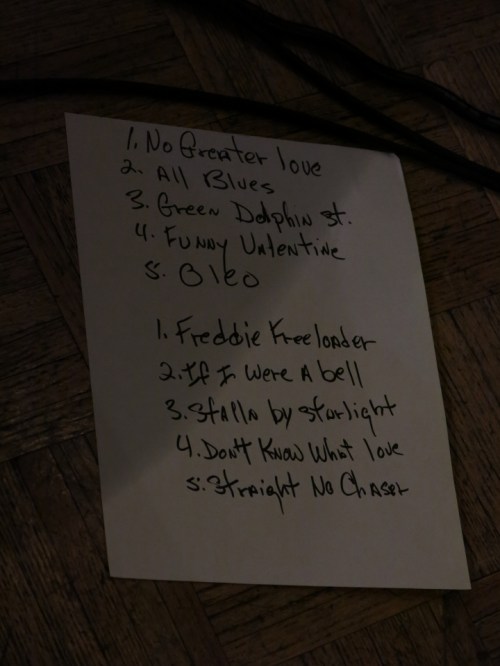 1. No Greater love
2. All Blues
3. Green Dolphin St.
4. Funny Valentine
5. Oleo
1. Freddie Freeloader
2. If I Were A bell
3. Stalla by starlight
4. Don't Know What love
5. Straight No Chaser